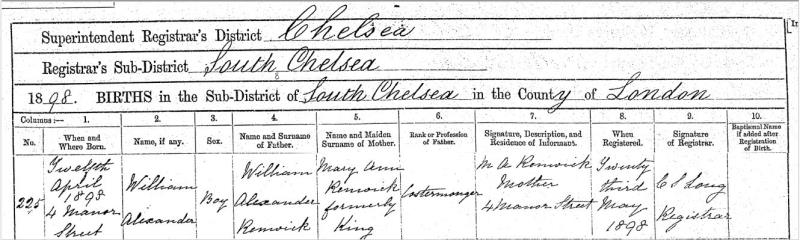 Superintendent Registrar's District Chelsea
Registrar's Sub-District South Chelsea
1898. BIRTHS in the Sub-District of South Chelsea in the County of London
Columns:— 1. 2. 3. 4. 5. 6. 7. 8. 9. 10.
No. When and Where Born. Name, if any. Sex. Name and Surname of Father. Name and Maiden Surname of Mother. Rank or Profession of Father. Signature, Description, and Residence of Informant. When Registered. Signature of Registrar. Baptismal Name if added after Registration of Birth.
225 Twelfth April 1898 4 Manor Street William Alexander Boy William Alexander Renwick Mary Ann Renwick formerly King Costermonger M A Renwick Mother 4 Manor Street Twenty third May 1898 C S Long Registrar